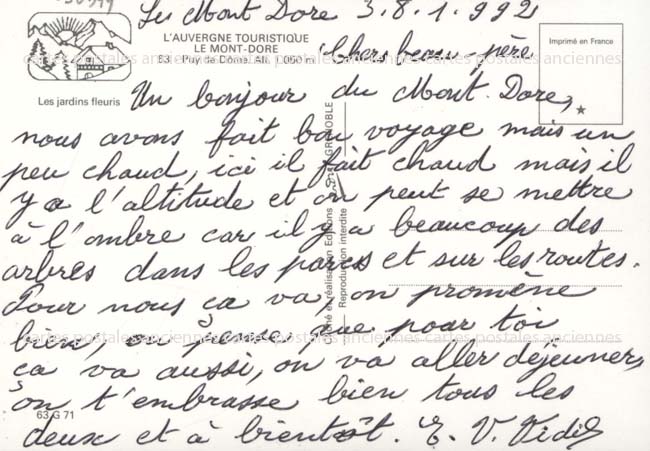 Le Mont Dore 3.8.1.992
L'AUVERGNE TOURISTIQUE
LE MONT-DORE
63 - Puy de Dôme. Alt. 1.050 m
Chers beau-père
Imprimé en France
Les jardins fleuris
Un bonjour du Mont-Dore,
nous avons fait bon voyage mais un
peu chaud, ici il fait chaud mais il
y a l'altitude et on peut se mettre
à l'ombre car il y a beaucoup des
arbres dans les parcs et sur les routes.
Pour nous ça va, on promène
bien, on pense que pour toi
ça va aussi, on va aller déjeuner,
on t'embrasse bien tous les
deux et à bientôt. E. V.
63 G 71
GRENOBLE
Cliché et réalisation Editions
Reproduction interdite
cartes postales anciennes cartes postales anciennes cartes postales anciennes
cartes postales anciennes cartes postales anciennes cartes postales anciennes